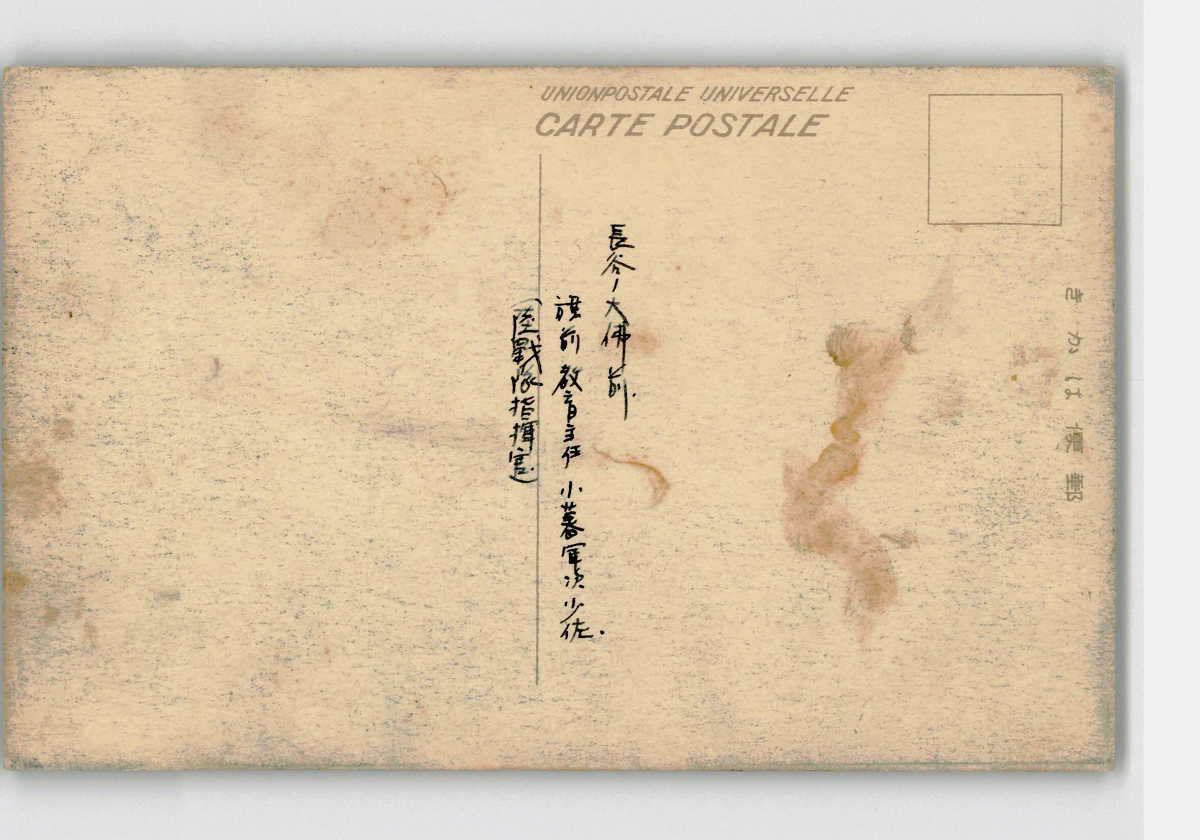 UNION POSTALE UNIVERSELLE
CARTE POSTALE
きかは便郵
長谷ノ大佛前.
旗前教育主任 小暮軍次少佐.
(陸戰隊指揮官)